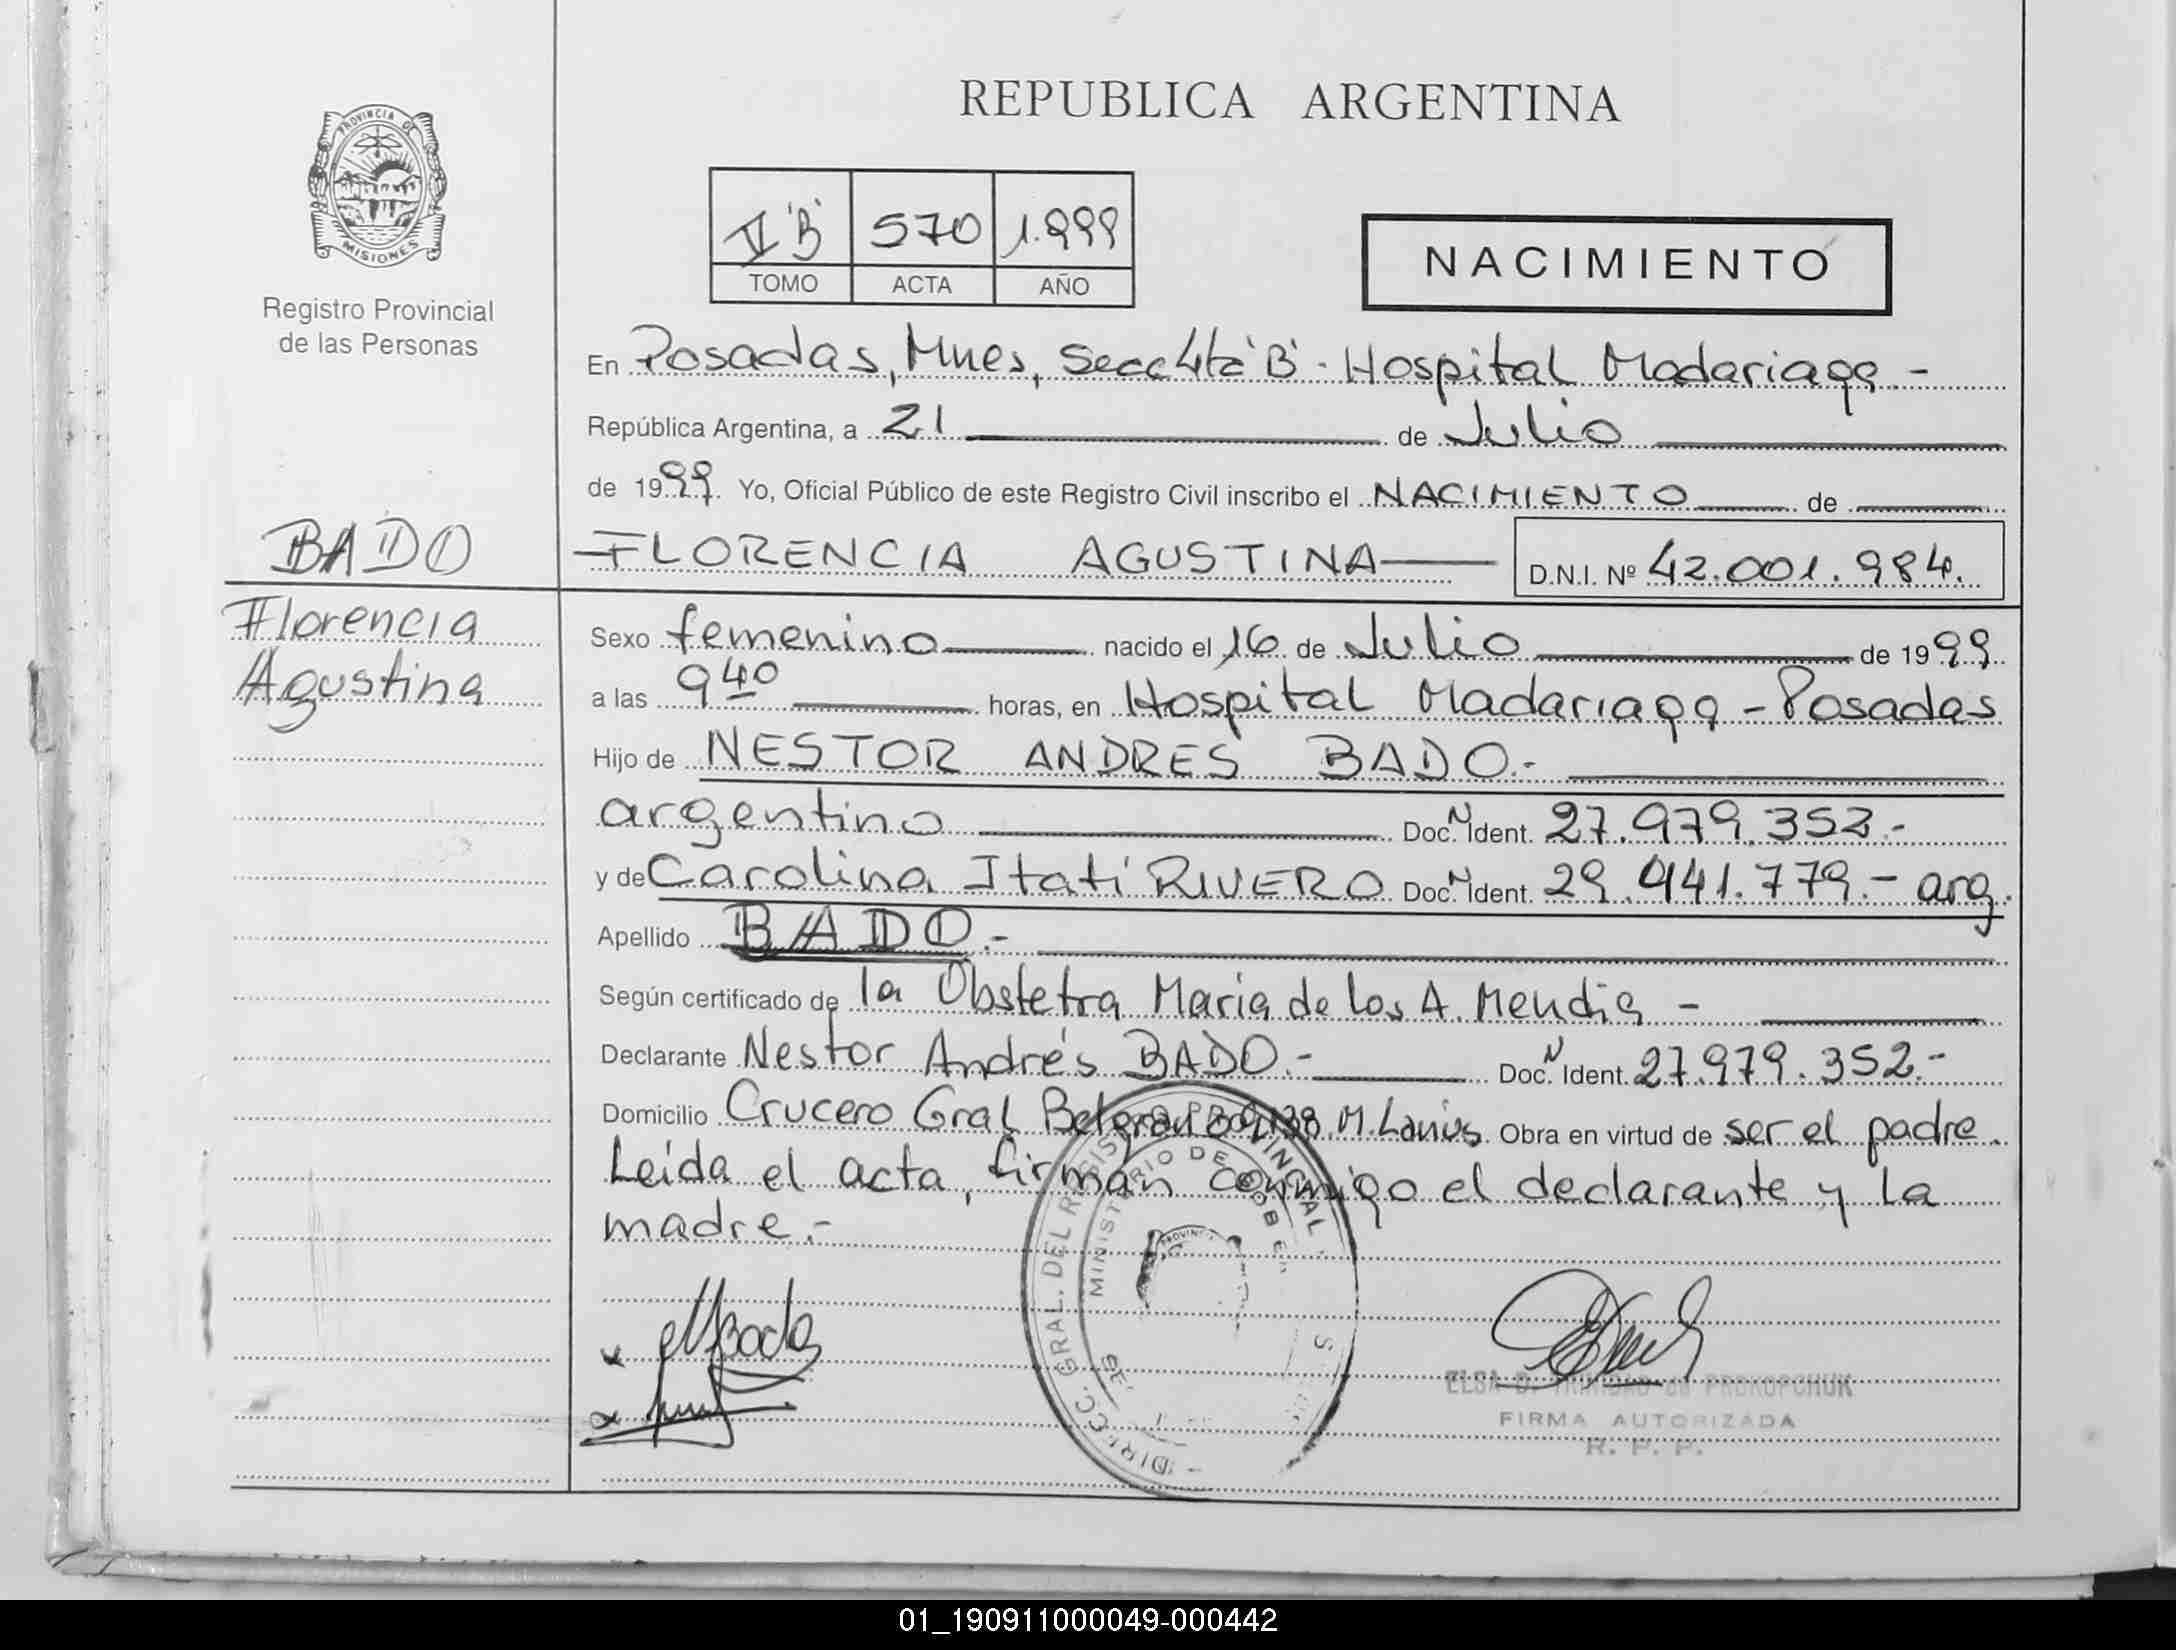 REPUBLICA ARGENTINA
PROVINCIA DE
MISIONES
Registro Provincial
de las Personas
"B" 570 1.999
TOMO ACTA AÑO
NACIMIENTO
En Posadas, Mnes, Secc 4ta "B" - Hospital Madariaga. -
República Argentina, a 21 de Julio
de 1999. Yo, Oficial Público de este Registro Civil inscribo el NACIMIENTO de
BADO
FLORENCIA AGUSTINA
D.N.I. Nº 42.001.984.
Florencia
Agustina
Sexo femenino nacido el 16 de Julio de 1999
a las 9 40 horas, en Hospital Madariaga - Posadas
Hijo de NESTOR ANDRES BADO.-
argentino Doc. N Ident. 27.979.352.-
y de Carolina Itatí RIVERO Doc. N Ident. 29.941.779.- arg.
Apellido BADO.-
Según certificado de la Obstetra Maria de los A. Mendia -
Declarante Nestor Andrés BADO.- Doc. N Ident. 27.979.352.-
Domicilio Crucero Gral Belgrano M. Lanús. Obra en virtud de ser el padre.
Leída el acta, firman conmigo el declarante y la
madre.-
GRAL. DEL PROVINCIAL
MINISTERIO DE GOB
ELSA D. TRINIDAD de PROKOPCHUK
FIRMA AUTORIZADA
R. P. P.
01_190911000049-000442